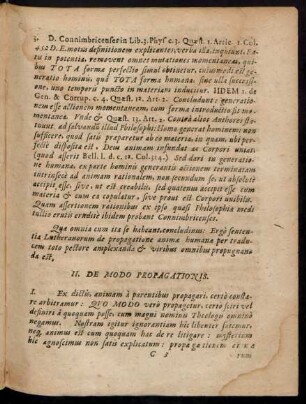 4. D. Connimbricenser in Lib. 3. Phys. c. 3. Quæst. 1. Artic. 1. Col.
412 D. E. motus definitionem explicantes, verba illa, inquiunt, En-
tu in potentia, removent omnes mutationes momentaneas, qui-
bus TOTA forma perfectio simul obtinetur, cuiusmodi est ge-
neratio hominis, qua TOTA forma humana, sine ulla successio-
ne, uno temporis puncto in materiam inducitur. IIDEM 1. de
Gen. & Corrup. c. 4. Quæst. 12. Art. 2. Concludunt: generatio-
nem esse actionem momentaneam, cum forma introductio sit mo-
mentanea. Unde & Quæst. 13. Art. 2. Contra alios Authores sta-
tuunt, ad solvendū illud Philosophi: Homo generat hominem; non
sufficere, quod satu præparetur ab eo materia, in quam, ubi per-
fectè disposita est: Deus animam infundat ac Corpori uniat;
(quod asserit Bell. l. d. c. 12. Col. 314.) Sed dari in generatio-
ne humana, ex parte hominis generantis actionem terminatam
intrinsecè ad animam rationalem, non secundum se, ut absolutè
accipit esse, sive, ut est creabilis, sed quatenus accipit esse cum
materia & cum ea copulatur, sive prout est Corpori unibilis.
Quam assertionem rationibus ex ipso quasi Philosophia medi-
tullio erutis eruditè ibidem probant Connimbricenses.
Quæ omnia cum ita se habeant, concludimus: Ergò senten-
tia Lutheranorum de propagatione anima humanæ per tradu-
cem toto pectore amplexanda & viribus omnibus propugnan-
da est,
II. DE MODO PROPAGATIONIS.
I. Ex dictis, animam à parentibus propagari, certò consta-
re arbitramur: QVO MODO verò propagetur, certò sciri vel
definiri à quoquam posse, cum magni nominis Theologo omninò
negamus. Nostram igitur ignorantiam hic libenter fatemur:
neq; animus est cum quoquam hac de re litigare: mysterium
hic agnoscimus non satis explicatum: propagationem viva
C 2 rum